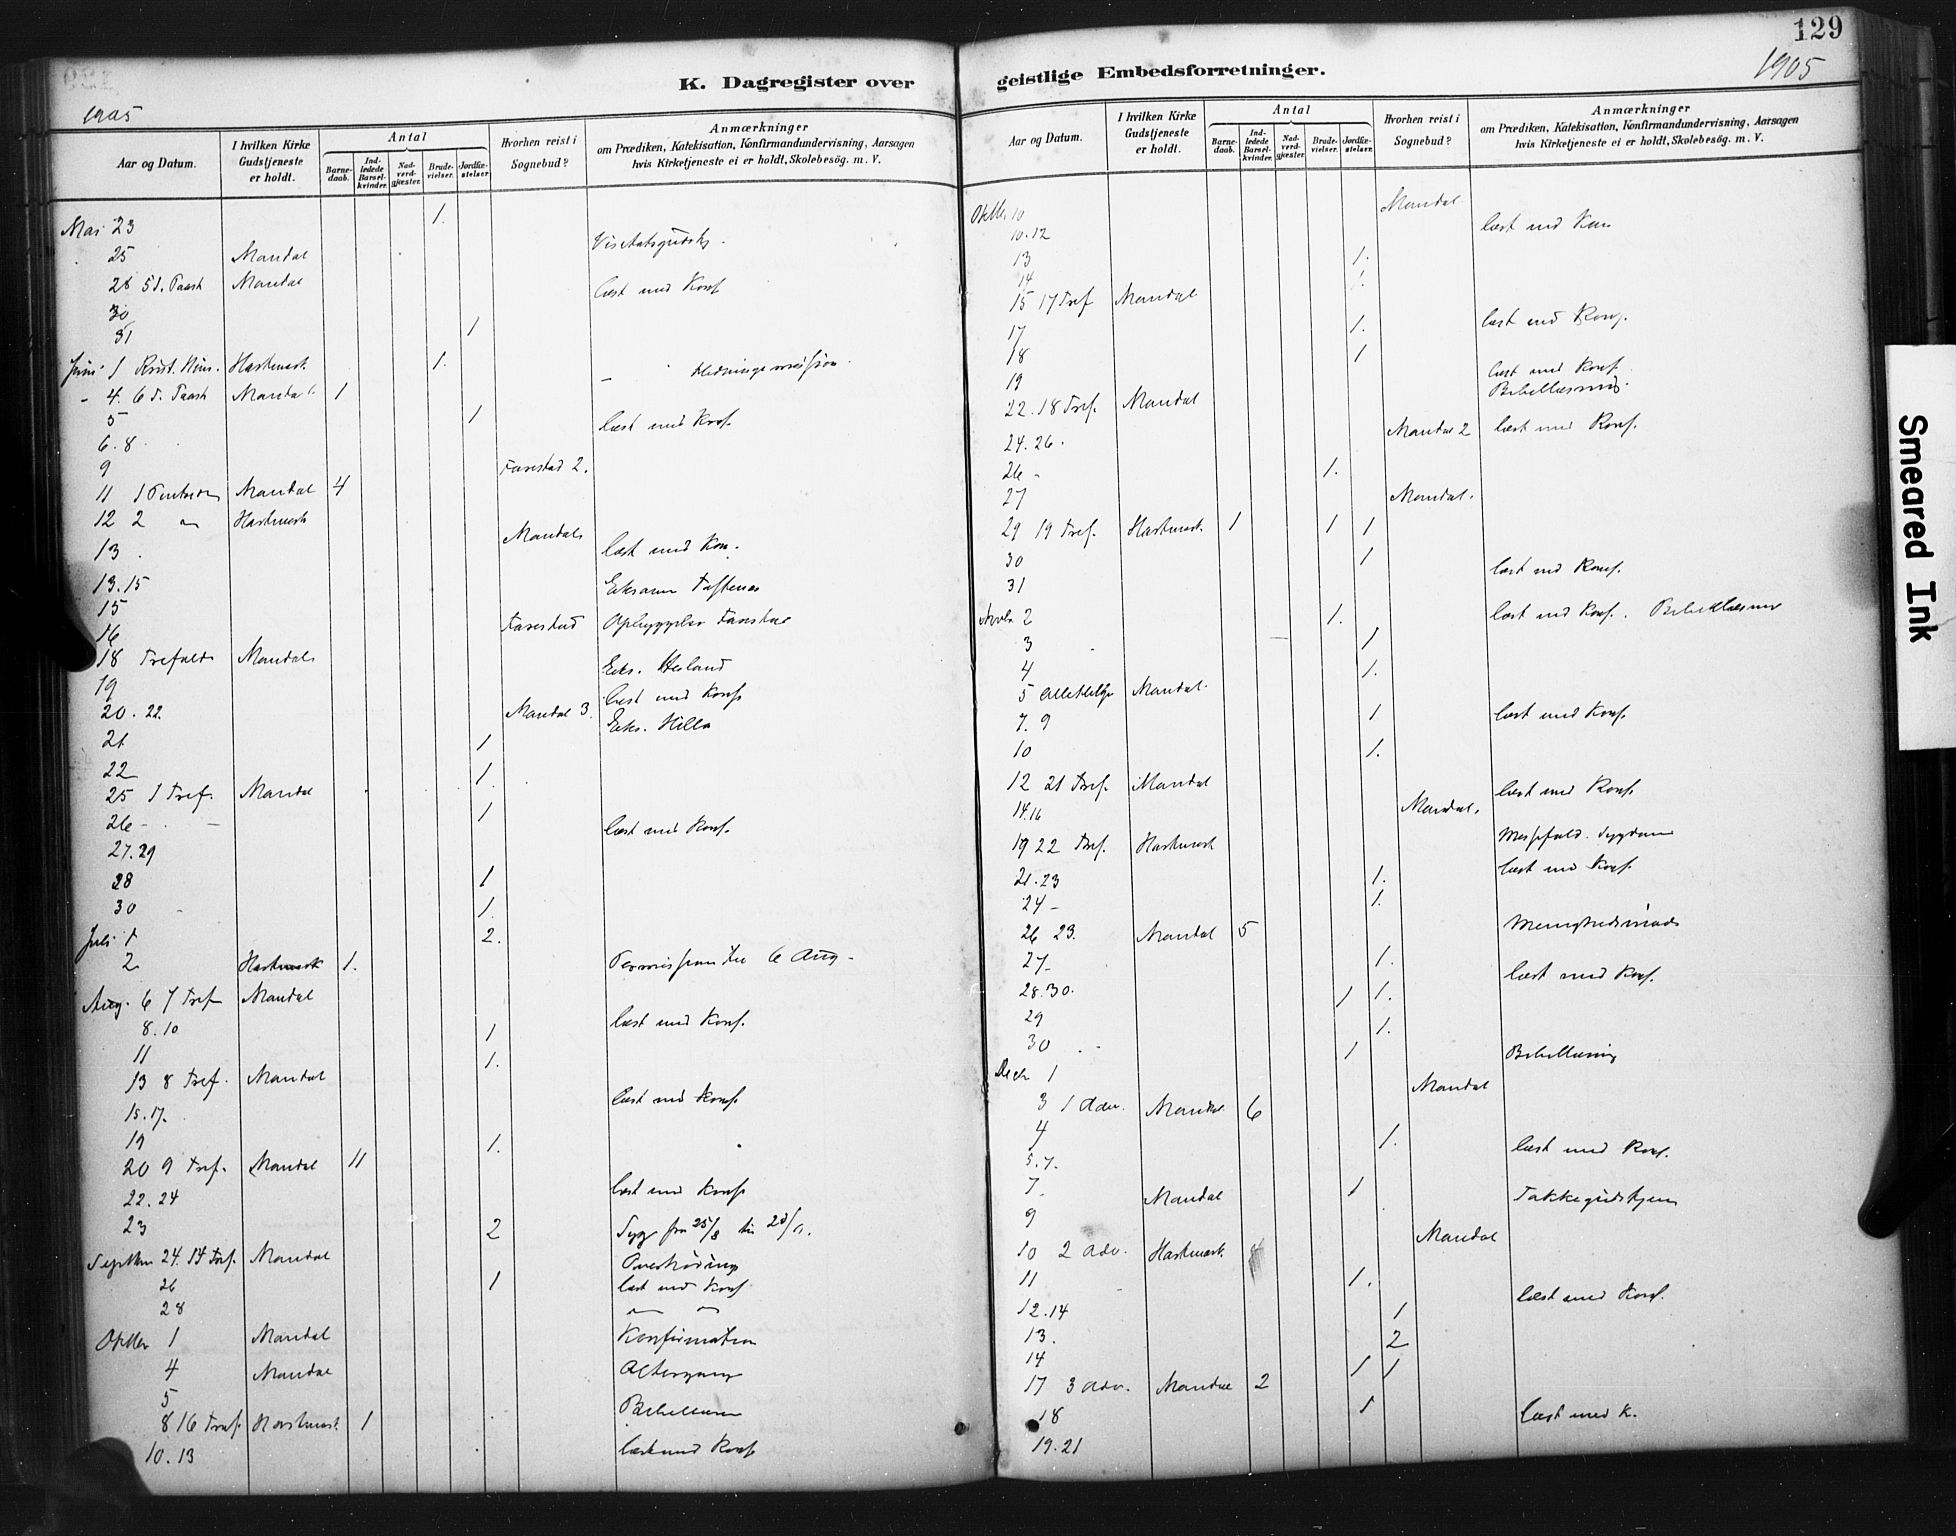 129
1905
K. Dagregister over
geistlige Embedsforretninger.
1905
Aar og Datum.
I hvilken Kirke Gudstjeneste er holdt.
Antal
Barne-daab.
Ind-ledede Barsel-kvinder.
Nad-verd-gjæster.
Brude-vielser.
Jordfæ-stelser.
Hvorhen reist i Sognebud?
Anmærkninger
om Prædiken, Katekisation, Konfirmandundervisning, Aarsagen
hvis Kirketjeneste ei er holdt, Skolebesög. m. V.
Mai 23 1.
25 Mandal
28 5 S. Paask Mandal læst med Konf
30
31 1
Juni 1 Hartmark 1. Hedningemission
4. 6 S. Paask Mandal 1
5 1 læst med Konf.
6. 8.
9 Farestad 2.
11 1 Mandal 4
12 2 Hartmark
Mandal
13. læst med Kon.
13.15 Eksamen
15
16 Farestad
18 Trefold Mandal
19 Eks.
20. 22. Mandal 3. læst med Konf
21 1 Eks.
22 1.
25 1 Tref. Mandal
26 - 1
27.29 læst med Konf.
28 1
30 1.
Juli 1 2.
2 Hartmark 1. Permission til 6 Aug -
Aug. 6 7 Tref Mandal
8.10 1 læst med Konf.
11 1.
13 8 Tref. Mandal
15.17. læst med Konf.
19 1.
20 9 Tref. Mandal 11
22.24 læst med Konf
23 2 Syg fra 25/8
24. 14 Tref. Mandal
26 1 læst med Konf
28
Oktbr 1 Mandal Konfirmation
4 Mandal Altergang
5
8 16 Tref. Hartmark. 1
10. 13 læst med Konf
Aar og Datum.
I hvilken Kirke Gudstjeneste er holdt.
Antal
Barne-daab.
Ind-ledede Barsel-kvinder.
Nad-verd-gjæster.
Brude-vielser.
Jordfæ-stelser.
Hvorhen reist i Sognebud?
Anmærkninger
om Prædiken, Katekisation, Konfirmandundervisning, Aarsagen
hvis Kirketjeneste ei er holdt, Skolebesög. m. V.
Oktbr. 10 Mandal
10.12 læst med Kon
13 1.
14 1.
15 17 Tref Mandal
17 1. læst med Konf.
18 1
19 læst med Konf.
22. 18 Tref. Mandal
24. 26. Mandal 2 læst med Konf.
26 - 1.
27 Mandal.
29 19 Tref. Hartmark. 1 1 1
30 1
31 læst med Konf.
Novbr 2 1. læst med Konf.
3 1
4 1.
5 Mandal.
7. 9 1 læst med Konf.
10 1.
12 21 Tref. Mandal
14.16 Mandal. læst med Konf.
19 22 Tref. Hartmark
21.23 1. læst med Konf.
24 - 1.
26 23. Mandal 5
27 - 1.
28.30. 1 1. læst med Konf.
29 1.
30 1
Decbr 1 Mandal
3 1 Adv. Mandal 6
4 1.
5.7. læst med Konf.
7. 1
9 Mandal
Mandal
10 2 Adv. Hartmark.
11 1.
12.14 1 læst med Konf.
13. 2
14 1 1
17 3 Adv. Mandal 2
18 1
19.21 læst med K.
Smeared Ink